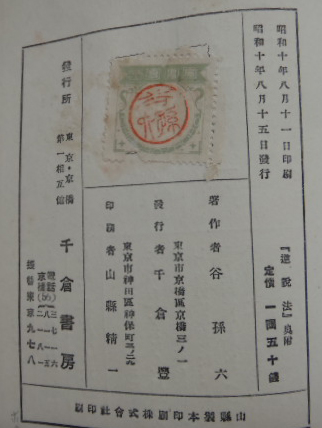 昭和十年八月十一日印刷
昭和十年八月十五日發行
『逆說法』奥附
定價 一圓五十錢
著作者 谷孫六
東京市京橋區京橋三ノ一
發行者 千倉豊
東京市神田區神保町三ノ二九
印刷者 山縣精一
發行所
東京・京橋
第一相互館
千倉書房
電話
京橋(56)
振替東京九七八
山縣製本印刷株式會社印刷